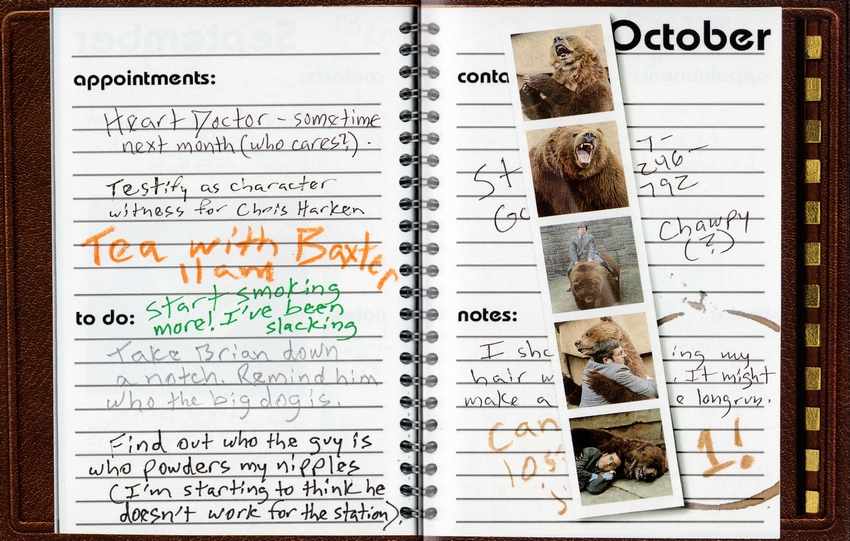 appointments:
Heart Doctor - sometime
next month (who cares?).
Testify as character
witness for Chris Harken
Tea with Baxter
11 am
to do:
Start smoking
more! I've been
slacking
Take Brian down
a notch. Remind him
who the big dog is.
Find out who the guy is
who powders my nipples
(I'm starting to think he
doesn't work for the station).
October
conta
St
7-
246-
792
Go
Chawpy
(?)
notes:
I sho ing my
hair w . It might
make a e longrun.
Can
10s 1!